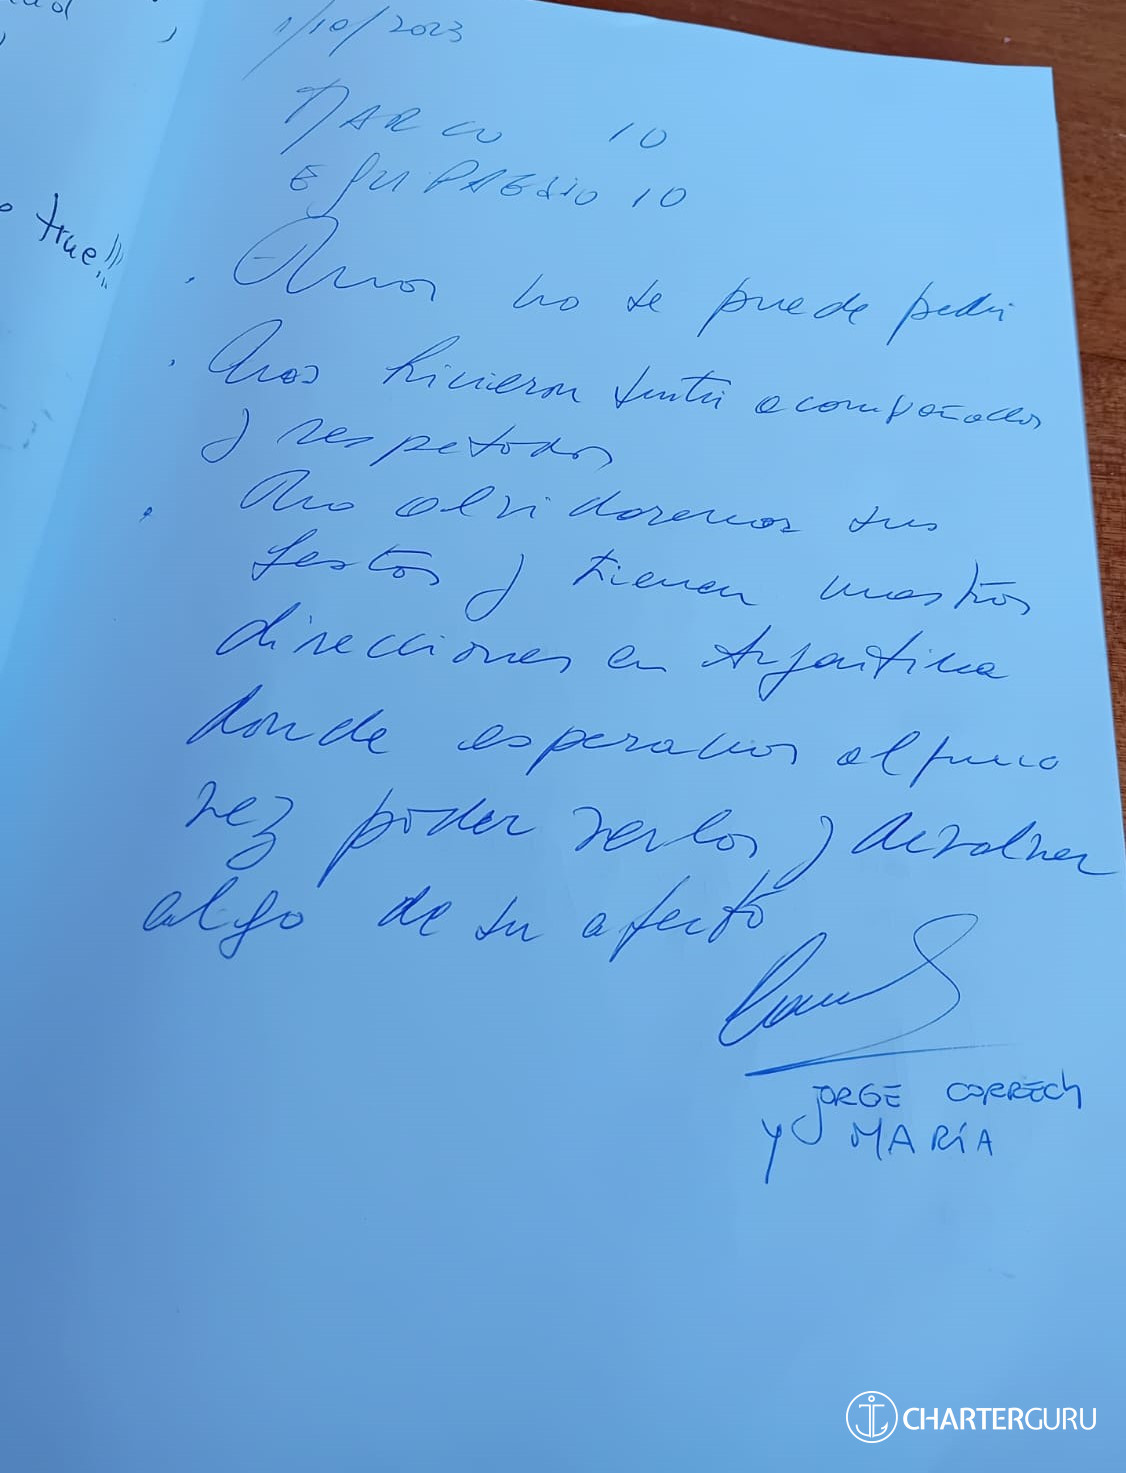 true!!!
1/10/2023
MARCO 10
EQUIPAGGIO 10
. no se puede pedir
. Nos hicieron sentir acompañados
y respetados
. No olvidaremos sus
gestos y tienen nuestras
direcciones en Argentina
donde esperamos alguna
vez poder verlos y devolver
algo de su afecto
JORGE CORRECH
Y MARÍA
CHARTERGURU